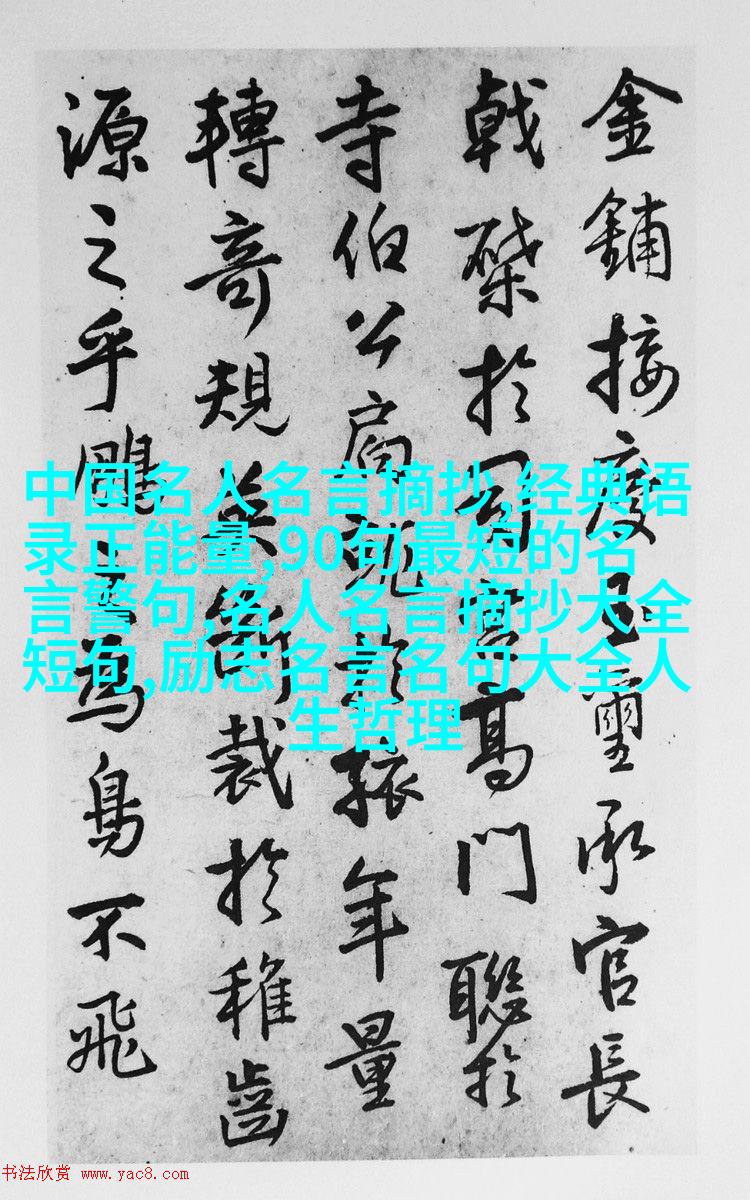 金鋪接慶玉璽承官長
戟棨於司高門聯於
寺伯公肩於孩年量
轉奇規斷裁於稚齒
源之乎鵬鳥不飛
中国名人名言摘抄,经典语
录正能量,90句最短的名
言警句,名人名言摘抄大全
短句,励志名言名句大全人
生哲理
书法欣赏 www.yac8.com